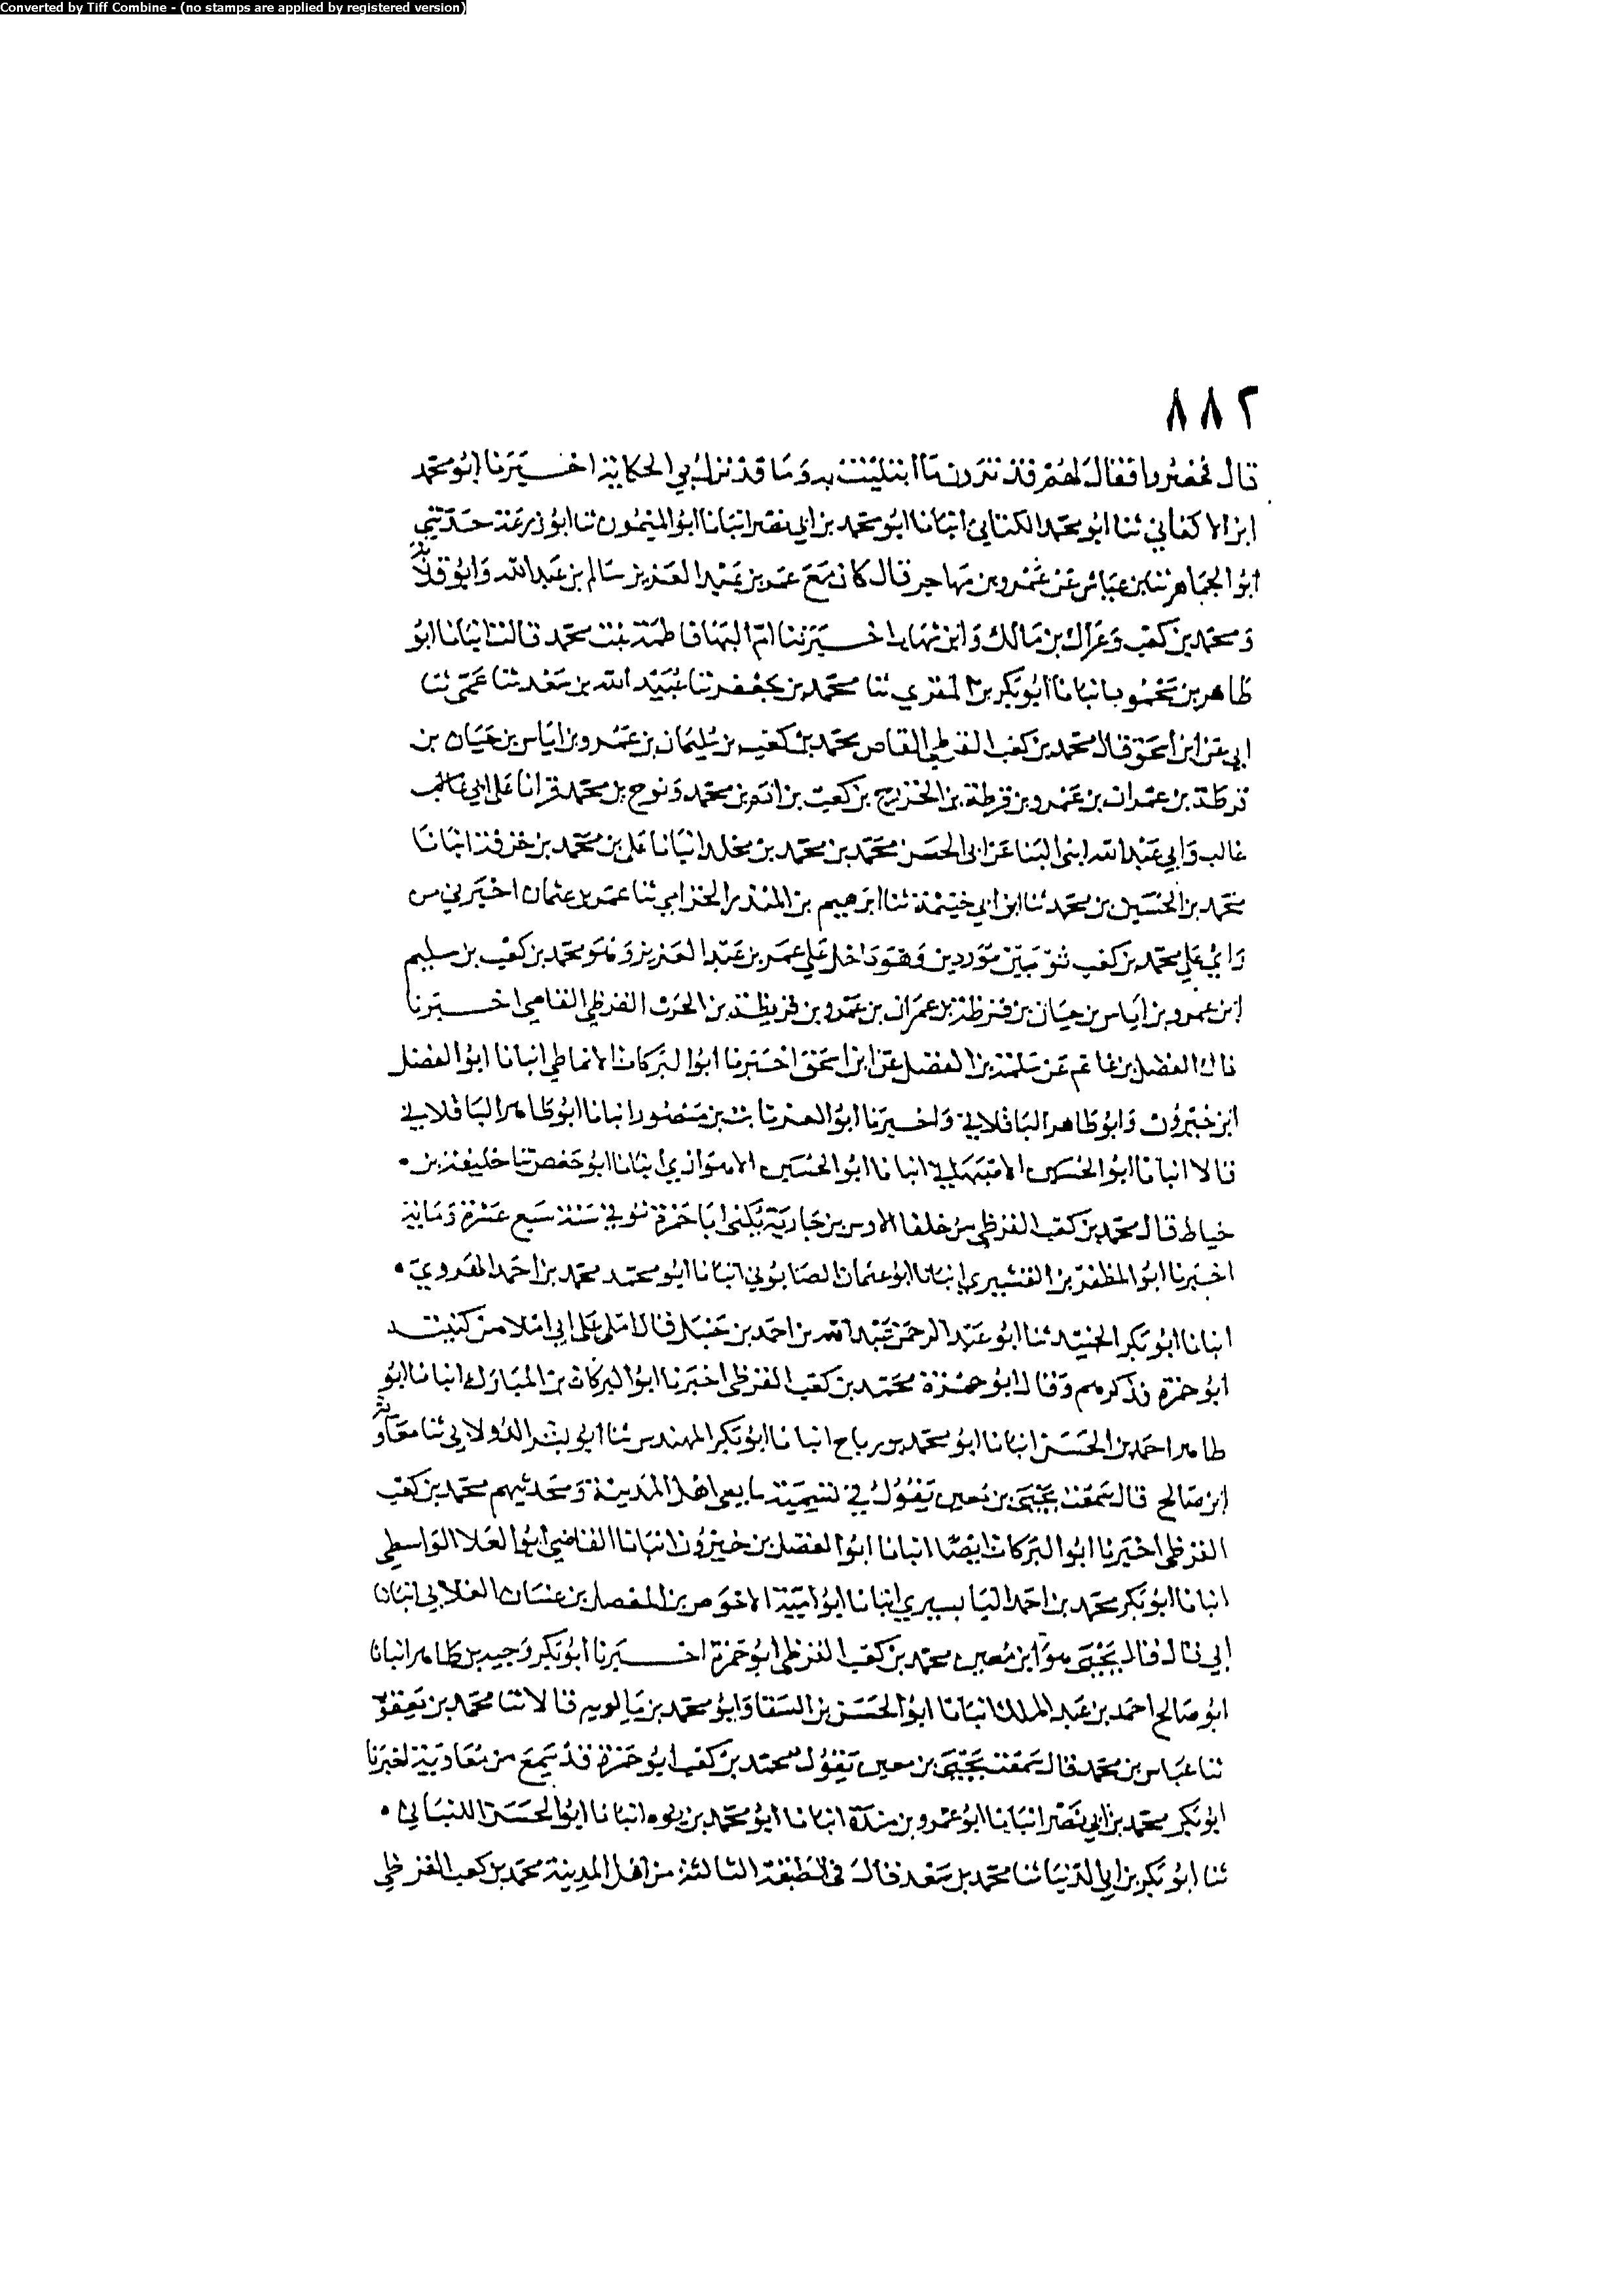 Converted by Tiff Combine - (no stamps are applied by registered version)
٨٨٢
قال فحضروا فقال لهم قد ترون ما ابتليت به وما قد نزل بي الحكاية اخبرنا ابو محمد
ابن الاكفاني ثنا ابو محمد الكتاني انبانا ابو محمد بن ابي نصر انبانا ابو الميمون ثنا ابو زرعة حدثني
ابو الجماهر ثنا بن عياش عن عمرو بن مهاجر قال كان مع عمر بن عبد العزيز سالم بن عبد الله وابو قلابة
ومحمد بن كعب وعراك بن مالك وابن شهاب اخبرتنا ام البها فاطمة بنت محمد قالت انبانا ابو
طاهر بن محمود انبانا ابو بكر بن المقري ثنا محمد بن جعفر ثنا عبيد الله بن سعد ثنا عمي ثنا
ابي عن ابن اسحق قال محمد بن كعب القرظي القاص محمد بن كعب بن سليمان بن عمرو بن اياس بن حيان بن
قرظة بن عمران بن عمرو بن قرظة بن الخزرج بن كعب بن محمد ونوح بن محمد قرانا على ابي غالب
غالب وابي عبد الله ابنى البنا عن ابي الحسن محمد بن محمد بن مخلد انبانا علي بن محمد بن خزفة انبانا
محمد بن الحسين بن محمد ثنا ابن ابي خيثمة ثنا ابرهيم بن المنذر الحزامي ثنا عمر بن عثمان اخبرني من
راي علي محمد بن كعب ثوبين موردين وهو داخل على عمر بن عبد العزيز وهو محمد بن كعب بن سليم
ابن عمرو بن اياس بن حيان بن قرظة بن عمران بن عمرو بن قريظة بن الحرث القرظي القاص اخبرنا
ذاك الفضل بن غانم عن سلمة بن الفضل عن ابن اسحق اخبرنا ابو البركات الانماطي انبانا ابو الفضل
ابن خيرون وابو طاهر الباقلاني واخبرنا ابو العز ثابت بن منصور انبانا ابو طاهر الباقلاني
قالا انبانا ابو الحسين الاصبهاني انبانا ابو الحسين الاهوازي انبانا ابو حفص ثنا خليفة بن
خياط قال محمد بن كعب القرظي من خلفا الاوس بن حارثة يكنى ابا حمزة توفي سنة سبع عشرة ومائة
اخبرنا ابو المظفر بن القشيري انبانا ابو عثمان الصابوني انبانا ابو محمد محمد بن احمد الهروي
انبانا ابو بكر الحفيد ثنا ابو عبد الرحمن عبد الله بن احمد بن حنبل قال املى علي ابي املا من كنيته
ابو حمزة فذكرهم وقال ابو حمزة محمد بن كعب القرظي اخبرنا ابو البركات بن المبارك انبانا ابو
طاهر احمد بن الحسن انبانا ابو محمد بن رباح انبانا ابو بكر المهندس ثنا ابو بشر الدولابي ثنا معاوية
ابن صالح قال سمعت يحيى بن معين يقول في تسمية تابعي اهل المدينة ومحدثيهم محمد بن كعب
القرظي اخبرنا ابو البركات ايضا انبانا ابو الفضل بن خيرون انبانا القاضي ابو العلا الواسطي
انبانا ابو بكر محمد بن احمد البابسيري انبانا ابو امية الاحوص بن المفضل بن غسان الغلابي انبانا
ابي قال قال يحيى هو ابن معين محمد بن كعب القرظي ابو حمزة اخبرنا ابو بكر وجيه بن طاهر انبانا
ابو صالح احمد بن عبد الملك انبانا ابو الحسن بن السقا وابو محمد بن بالويه قالا ثنا محمد بن يعقوب
ثنا عباس بن محمد قال سمعت يحيى بن معين يقول محمد بن كعب ابو حمزة قد سمع من معاوية اخبرنا
ابو بكر محمد بن ابي نصر انبانا ابو عمرو بن مندة انبانا ابو محمد بن يوه انبانا ابو الحسن اللنباني
ثنا ابو بكر بن ابي الدنيا ثنا محمد بن سعد قال في الطبقة الثالثة من اهل المدينة محمد بن كعب القرظي